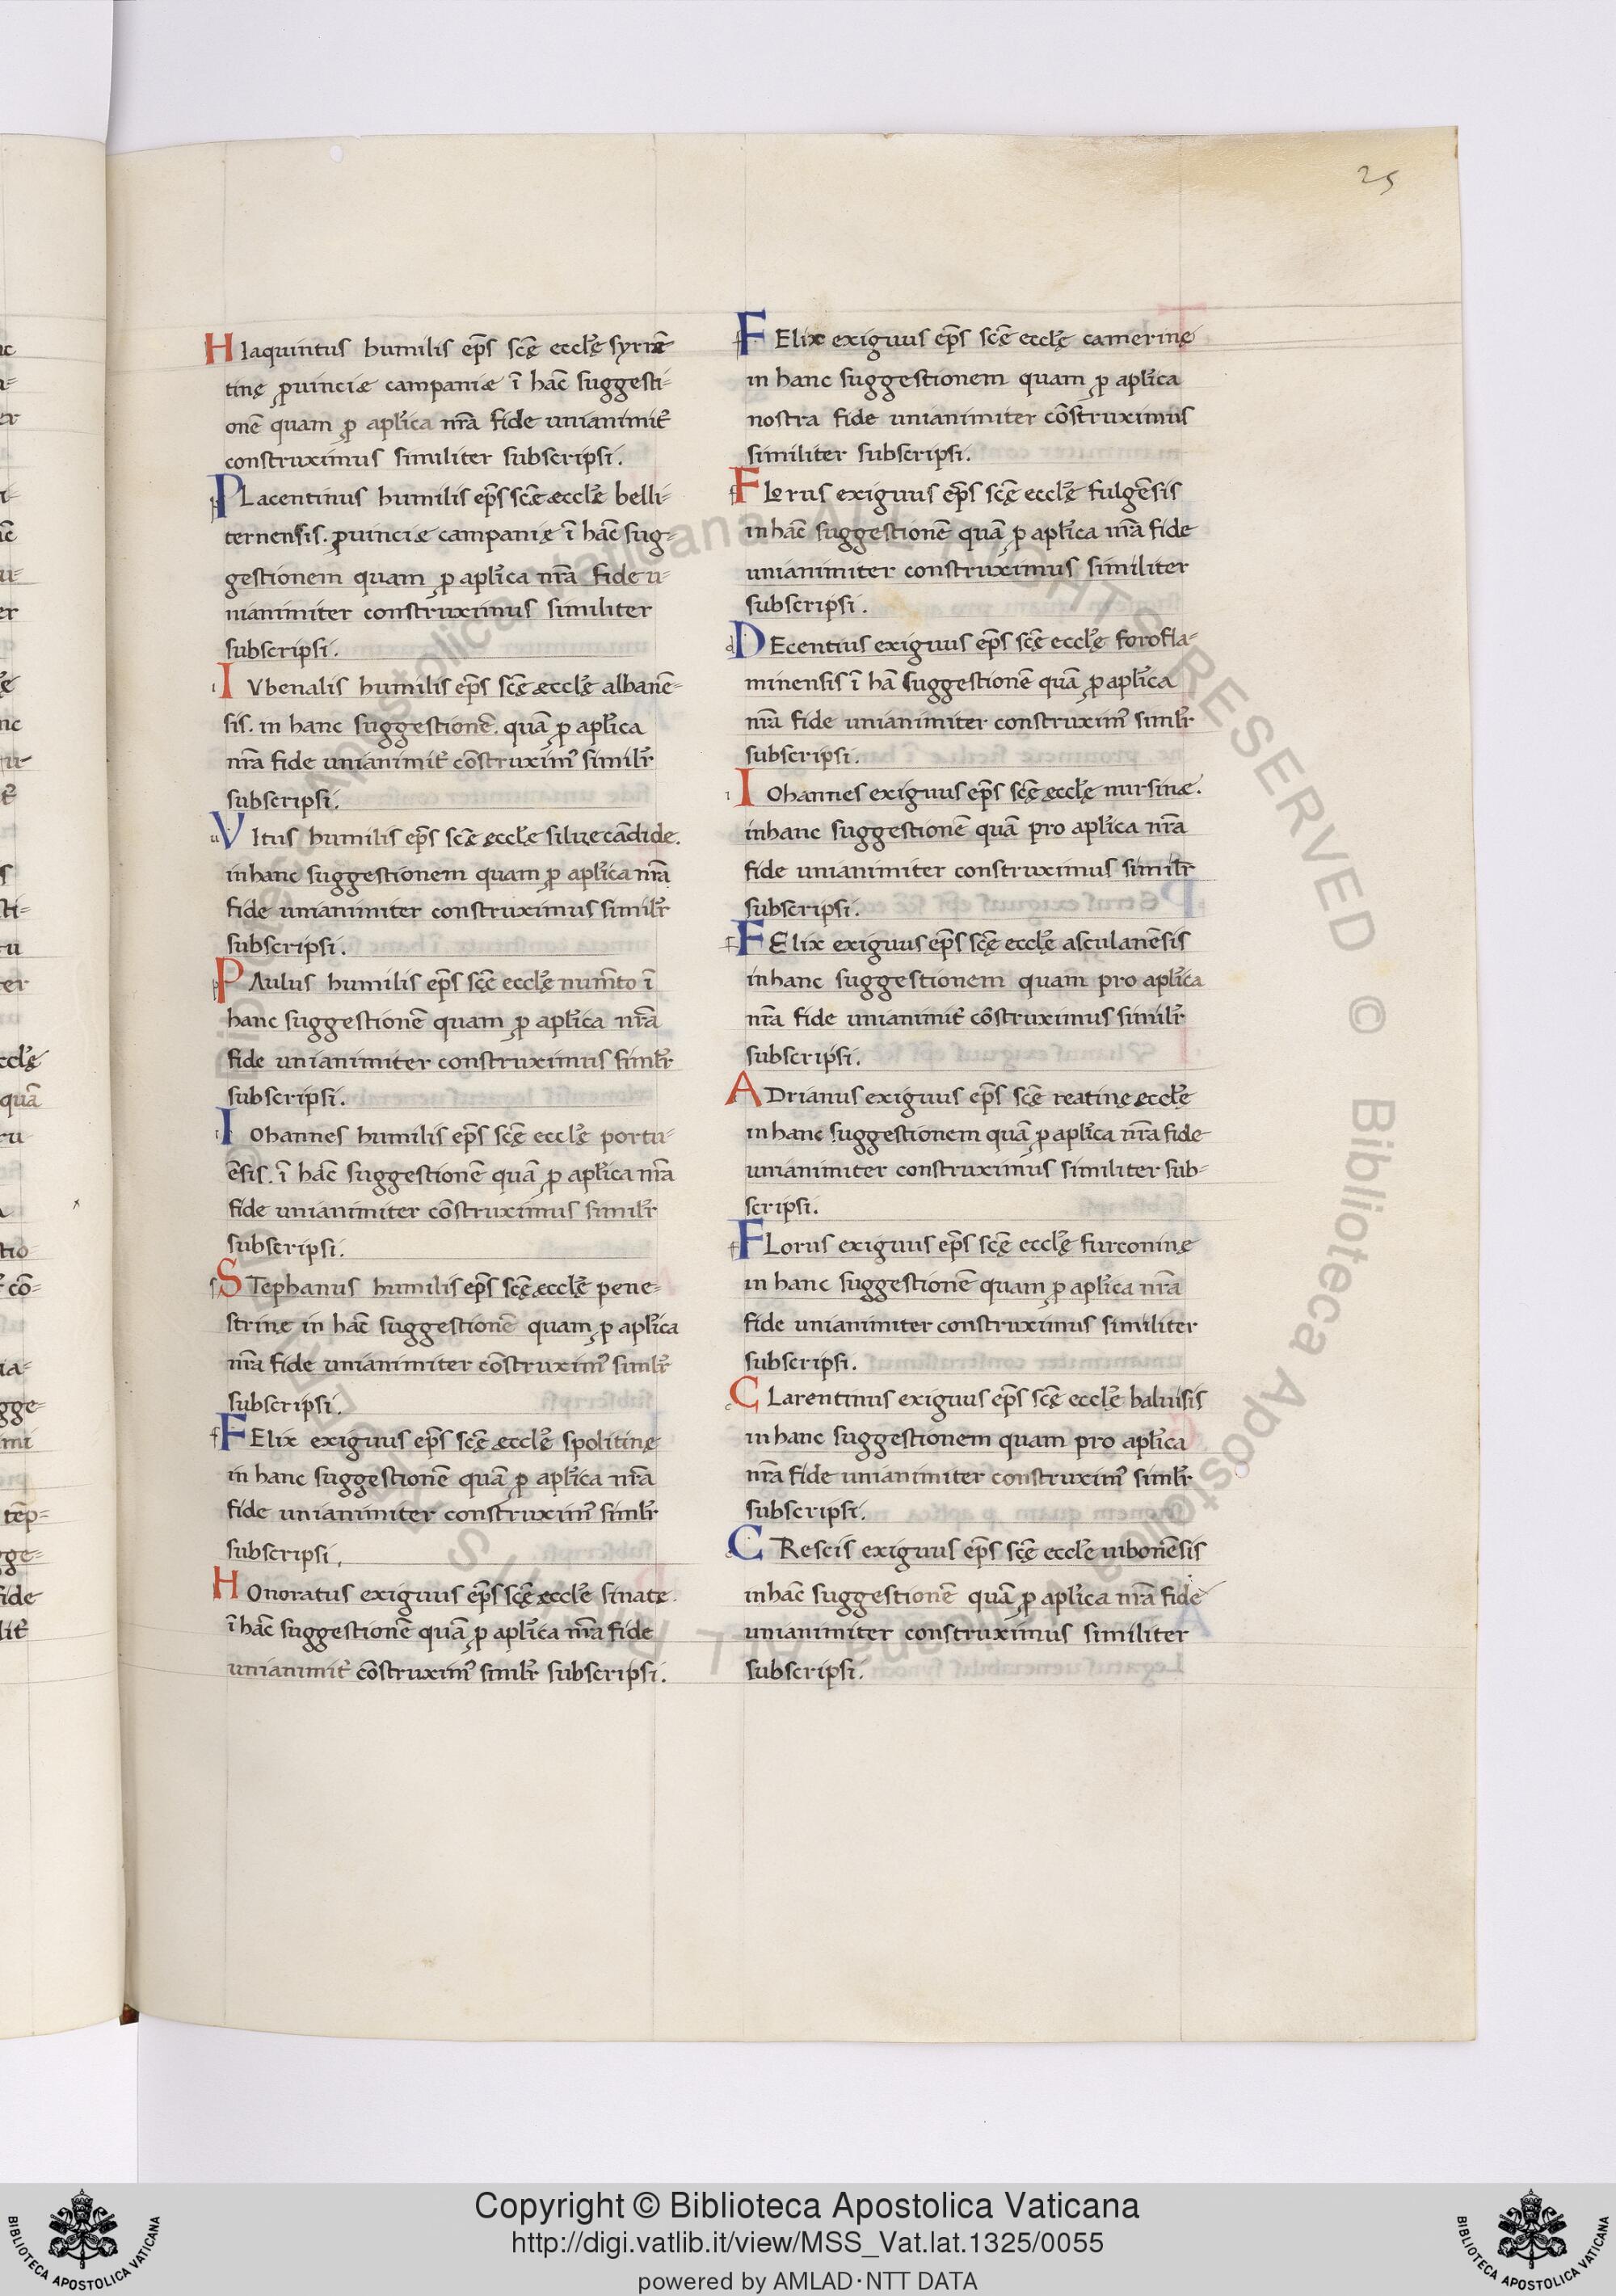 25
Hiaquintus humilis ep̄s sc̄ę eccl̓ę syrrē
tinę ꝓuinciæ campaniæ ī hac̄ suggesti-
onē quam ꝓ apl̓ica nr̄a fide unianimit̓
construximus similiter subscripsi.
PLacentinus humilis ep̄s sc̄ę æccl̓ę belli-
ternensis. ꝓuinciæ campanię ī hāc sug-
gestionem quam ꝓ apl̓ica nr̄a fide u-
nianimiter construximus similiter
subscripsi.
IVbenalis humilis ep̄s sc̄ę æccl̓ę albanē-
sis. in hanc suggestionē. quā ꝓ apl̓ica
nr̄a fide unianimit̓ cōstruxim᾽ simil̓r
subscripsi.
VItus humilis ep̄s sc̄ę ęccl̓e siluęcādidę.
inhanc suggestionem quam ꝓ apl̓ica nr̄a
fide unianimiter construximus simil̓r
subscripsi.
PAulus humilis ep̄s sc̄ę eccl̓ę num̄to ī
hanc suggestionē quam ꝓ apl̓ica nr̄a
fide unianimiter construximus simil̓r
subscripsi.
IOhannes humilis ep̄s sc̄ę eccl̓ę portu-
ēsis. ī hāc suggestionē quā ꝓ apl̓ica nr̄a
fide unianimiter cōstruximus simil̓r
subscripsi.
STephanus humilis ep̄s sc̄ę æccl̓ę pene-
strinę in hāc suggestionē quam ꝓ apl̓ica
nr̄a fide unianimiter cōstruxim᾽ simil̓r
subscripsi.
FElix exiguus ep̄s sc̄ę æccl̓ę spolitinę
in hanc suggestionē quā ꝓ apl̓ica nr̄a
fide unianimiter construxim᾽ simil̓r
subscripsi.
HOnoratus exiguus ep̄s sc̄ę æccl̓ę sinatę.
ī hāc suggestionē quā ꝓ apl̓ica nr̄a fide
unianimit̓ cōstruxim᾽ simil̓r subscripsi.
FElix exiguus ep̄s sc̄ę eccl̓ę camerinę
in hanc suggestionem quam ꝓ apl̓ica
nostra fide unianimiter cōstruximus
similiter subscripsi.
FLorus exiguus ep̄s sc̄ę eccl̓ę fulgēsis
in hāc suggestionē quā ꝓ apl̓ica nr̄a fide
unianimiter construximus similiter
subscripsi.
DEcentius exiguus ep̄s sc̄ę eccl̓ę forofla-
minensis ī hā suggestionē quā ꝓ apl̓ica
nr̄a fide unianimiter construxim᾽ simil̓r
subscripsi.
IOhannes exiguus ep̄s sc̄ę ęccl̓ę nursinæ.
inhanc suggestionē quā pro apl̓ica nr̄a
fide unianimiter construximus simil̓r
subscripsi.
FElix exiguus ep̄s sc̄ę eccl̓ę asculanēsis
inhanc suggestionem quam pro apl̓ica
nr̄a fide unianimit̓ cōstruximus simil̓r
subscripsi.
ADrianus exiguus ep̄s sc̄ę reatinę eccl̓ę
in hanc suggestionem quā ꝓ apl̓ica nr̄a fide
unianimiter construximus similiter sub-
scripsi.
FLorus exiguus ep̄s sc̄ę eccl̓ę furconinę
in hanc suggestionē quam ꝓ apl̓ica nr̄a
fide unianimiter construximus similiter
subscripsi.
CLarentinus exiguus ep̄s sc̄ę eccl̓ę baluisis
in hanc suggestionem quam pro apl̓ica
nr̄a fide unianimiter construxim᾽ simil̓r
subscripsi.
CRescis exiguus ep̄s sc̄ę eccl̓e uibonēsis
in hāc suggestionē quā ꝓ apl̓ica nr̄a fide
unianimiter construximus similiter
subscripsi.
Copyright © Biblioteca Apostolica Vaticana
http://digi.vatlib.it/view/MSS_Vat.lat.1325/0055
powered by AMLAD·NTT DATA
BIBLIOTECA APOSTOLICA VATICANA
BIBLIOTECA APOSTOLICA VATICANA